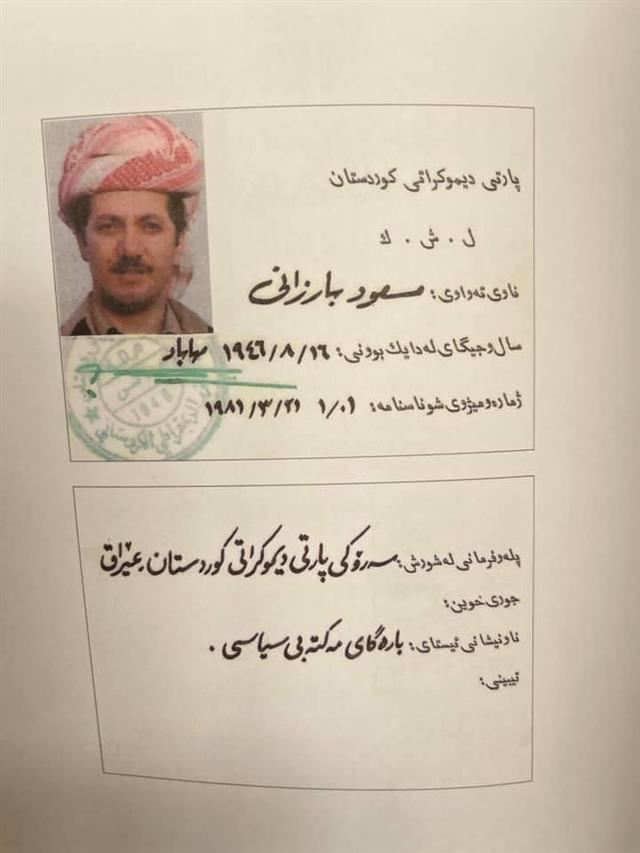 پارتی دیموکراتی کوردستان
ل . ش . ك
ناوی تەواوی: مسعود بارزانی
سال وجیگای لەدایك بوونی: ١٩٤٦/٨/١٦ مهاباد
ژمارە و میژوی شوناسنامە: ١/٠١ ١٩٨١/٣/٢١
1946
پلەو فرمانی لە شورش: سەرۆکی پارتی دیموکراتی کوردستان.عێراق
جوری خوین:
ناونیشانی ئیستای: بارەگای مەکتەبی سیاسی .
تیبینی: